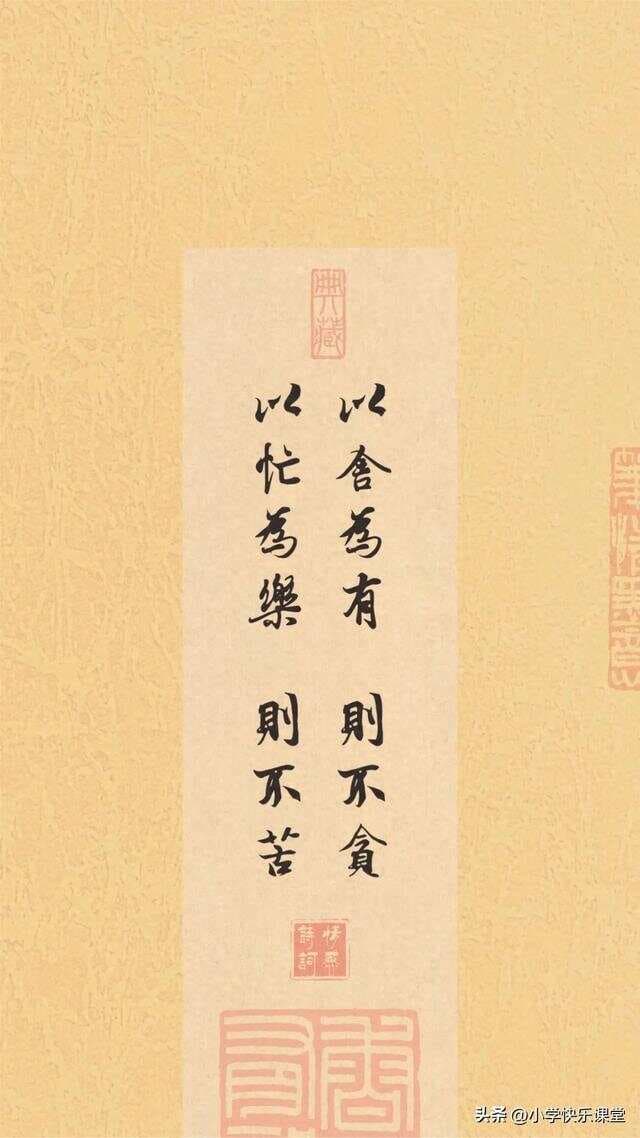 典藏
以舍為有 則不貪
以忙為樂 則不苦
詩詞
头条 @小学快乐课堂